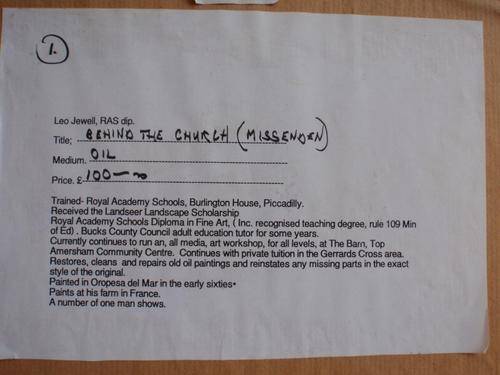 1.
Leo Jewell, RAS dip.
Title; BEHIND THE CHURCH (MISSENDEN)
Medium. OIL
Price. £ 100—
Trained- Royal Academy Schools, Burlington House, Piccadilly.
Received the Landseer Landscape Scholarship
Royal Academy Schools Diploma in Fine Art, ( Inc. recognised teaching degree, rule 109 Min
of Ed) . Bucks County Council adult education tutor for some years.
Currently continues to run an, all media, art workshop, for all levels, at The Barn, Top
Amersham Community Centre. Continues with private tuition in the Gerrards Cross area.
Restores, cleans and repairs old oil paintings and reinstates any missing parts in the exact
style of the original.
Painted in Oropesa del Mar in the early sixties•
Paints at his farm in France.
A number of one man shows.